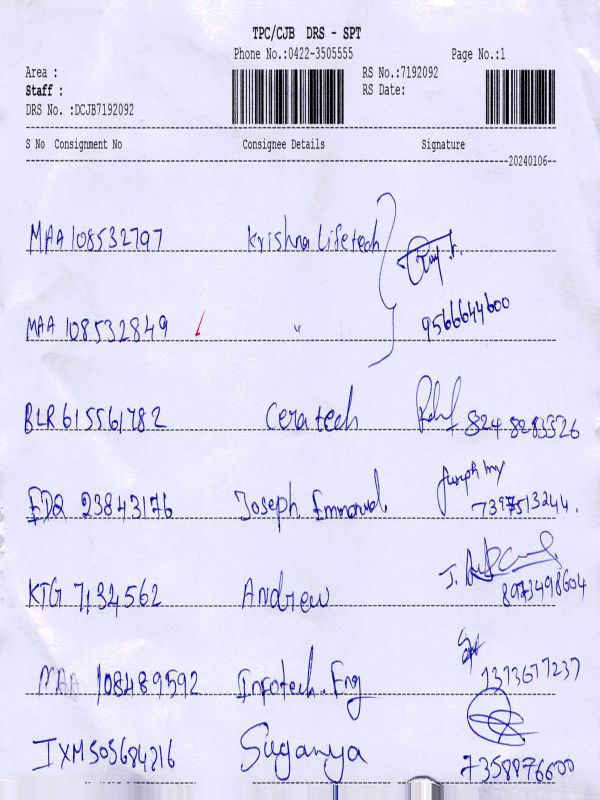 TPC/CJB DRS - SPT
Phone No.:0422-3505555 Page No.:1
Area : RS No.:7192092
Staff : RS Date:
DRS No. :DCJB7192092
S No Consignment No Consignee Details Signature
20240106
MAA 108532797 Krishna Lifetech
9566644600
MAA 108532849 "
BLR 615561782 Ceratech 824 8283526
EDQ 23843176 Joseph Emmanuel 7397513244.
KTG 7134562 Andrew 8973498604
MAA 108489592 Infotech. Eng 7373677237
IXM 505684216 Suganya 7358876600